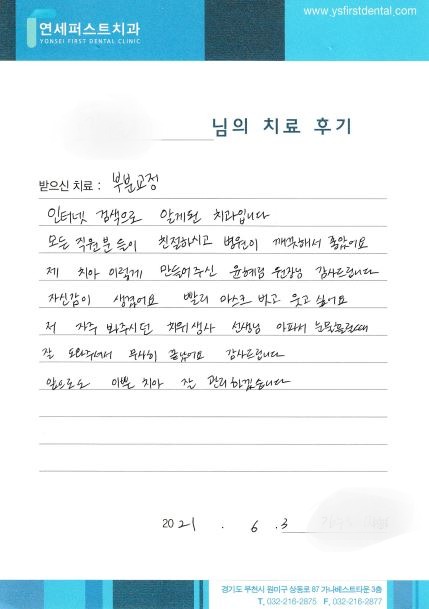 www.ysfirstdental.com
연세퍼스트치과
YONSEI FIRST DENTAL CLINIC
님의 치료 후기
받으신 치료 : 부분교정
인터넷 검색으로 알게된 치과입니다
모든 직원분들이 친절하시고 병원이 깨끗해서 좋았어요
제 치아 이렇게 만들어주신 윤혜림 원장님 감사드립니다
자신감이 생겼어요 빨리 마스크 벗고 웃고 싶어요
저 자주 봐주시던 치위생사 선생님 아파서 눈물흘릴때
잘 도와주셔서 무사히 끝났어요 감사드립니다
앞으로도 이쁜 치아 잘 관리하겠습니다
2021 . 6 . 3
경기도 부천시 원미구 상동로 87 가나베스트타운 3층
T. 032-216-2875 F. 032-216-2877